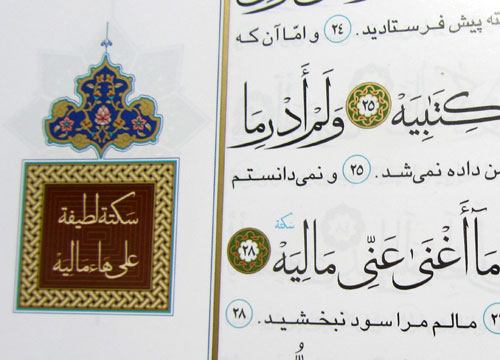 سكتة لطيفة
على هاء مالية
ته پیش فرستادید. ۲۴ و امّا آن که
كِتَٰبِيَهْ ۲۵ وَلَمْ أَدْرِ مَا
من داده نمی‌شد. ۲۵ و نمی‌دانستم
سكتة
مَآ أَغْنَىٰ عَنِّي مَالِيَهْ ۲۸
مالم مرا سود نبخشید. ۲۸